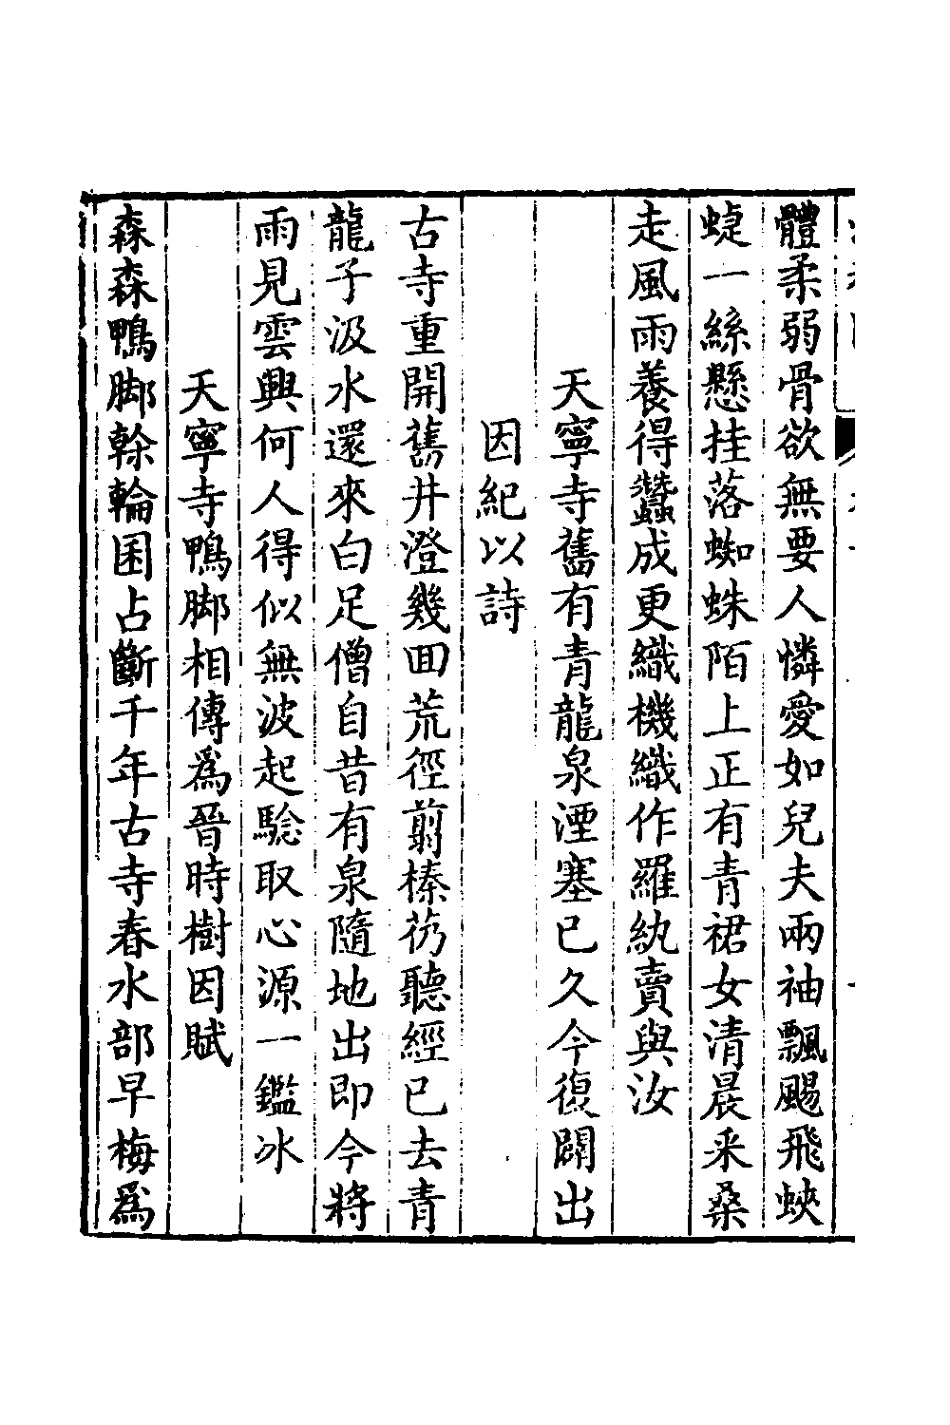 體柔弱骨欲無要人憐愛如兒夫兩袖飄颺飛蛺
蜨一絲懸挂落蜘蛛陌上正有青裙女清晨采桑
走風雨養得蠶成更織機織作羅紈賣與汝
天寧寺舊有青龍泉湮塞已久今復闢出
因紀以詩
古寺重開舊井澄幾回荒徑翦榛艿聽經已去青
龍子汲水還來白足僧自昔有泉隨地出即今將
雨見雲興何人得似無波起驗取心源一鑑冰
天寧寺鴨脚相傳爲晉時樹因賦
森森鴨脚榦輪囷占斷千年古寺春水部早梅爲